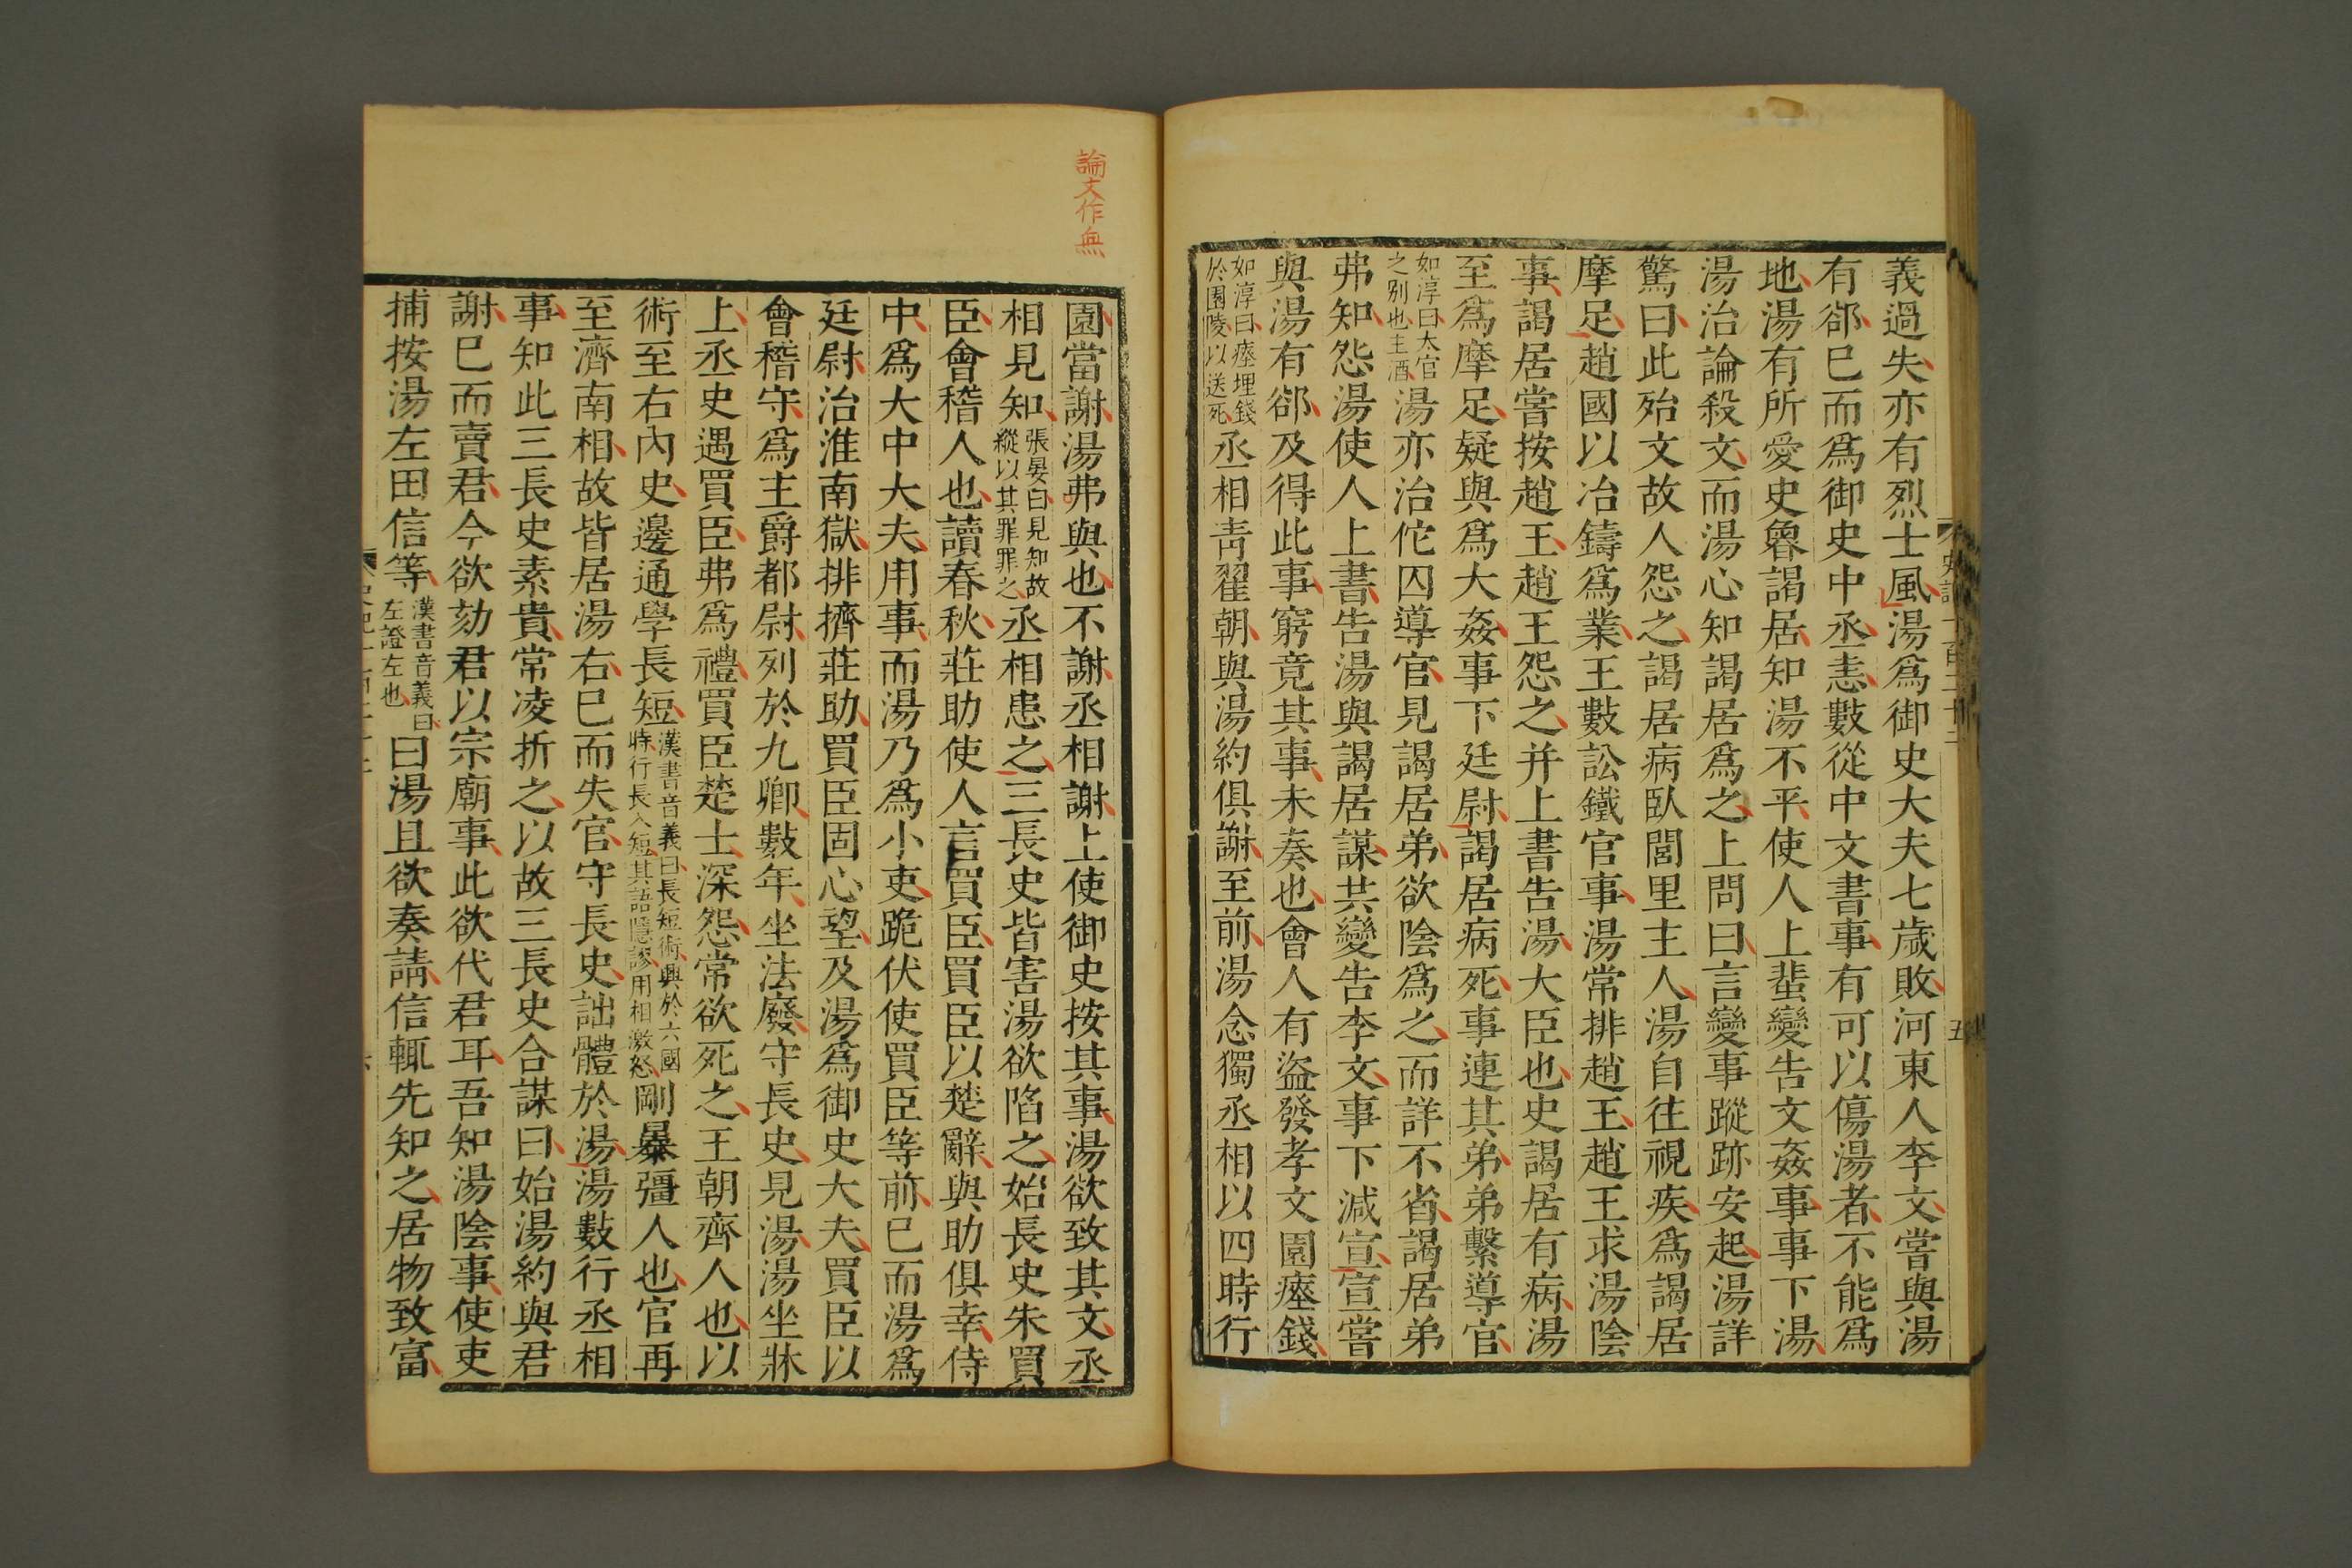 義過失亦有烈士風湯爲御史大夫七歲敗河東人李文嘗與湯
有郤巳而爲御史中丞恚數從中文書事有可以傷湯者不能爲
地湯有所愛史魯謁居知湯不平使人上蜚變告文姦事事下湯
湯治論殺文而湯心知謁居爲之上問曰言變事蹤跡安起湯詳
驚曰此殆文故人怨之謁居病臥閭里主人湯自往視疾爲謁居
摩足趙國以冶鑄爲業王數訟鐵官事湯常排趙王趙王求湯陰
事謁居嘗按趙王趙王怨之并上書告湯大臣也史謁居有病湯
至爲摩足疑與爲大姦事下廷尉謁居病死事連其弟弟繫導官
如淳曰太官之别也主酒湯亦治佗囚導官見謁居弟欲陰爲之而詳不省謁居弟
弗知怨湯使人上書告湯與謁居謀共變告李文事下減宣宣嘗
與湯有郤及得此事窮竟其事未奏也會人有盜發孝文園瘞錢
如淳曰瘞埋錢於園陵以送死丞相青翟朝與湯約俱謝至前湯念獨丞相以四時行
五
論文作無
園當謝湯弗與也不謝丞相謝上使御史按其事湯欲致其文丞
相見知張晏曰見知故縱以其罪罪之丞相患之三長史皆害湯欲陷之始長史朱買
臣會稽人也讀春秋莊助使人言買臣買臣以楚辭與助俱幸侍
中爲大中大夫用事而湯乃爲小吏跪伏使買臣等前巳而湯爲
廷尉治淮南獄排擠莊助買臣固心望及湯爲御史大夫買臣以
會稽守爲主爵都尉列於九卿數年坐法廢守長史見湯湯坐牀
上丞史遇買臣弗爲禮買臣楚士深怨常欲死之王朝齊人也以
術至右內史邊通學長短漢書音義曰長短術興於六國時行長入短其語隱謬用相激怒剛暴彊人也官再
至濟南相故皆居湯右巳而失官守長史詘體於湯湯數行丞相
事知此三長史素貴常凌折之以故三長史合謀曰始湯約與君
謝巳而賣君今欲劾君以宗廟事此欲代君耳吾知湯陰事使吏
捕按湯左田信等漢書音義曰左證左也曰湯且欲奏請信輒先知之居物致富